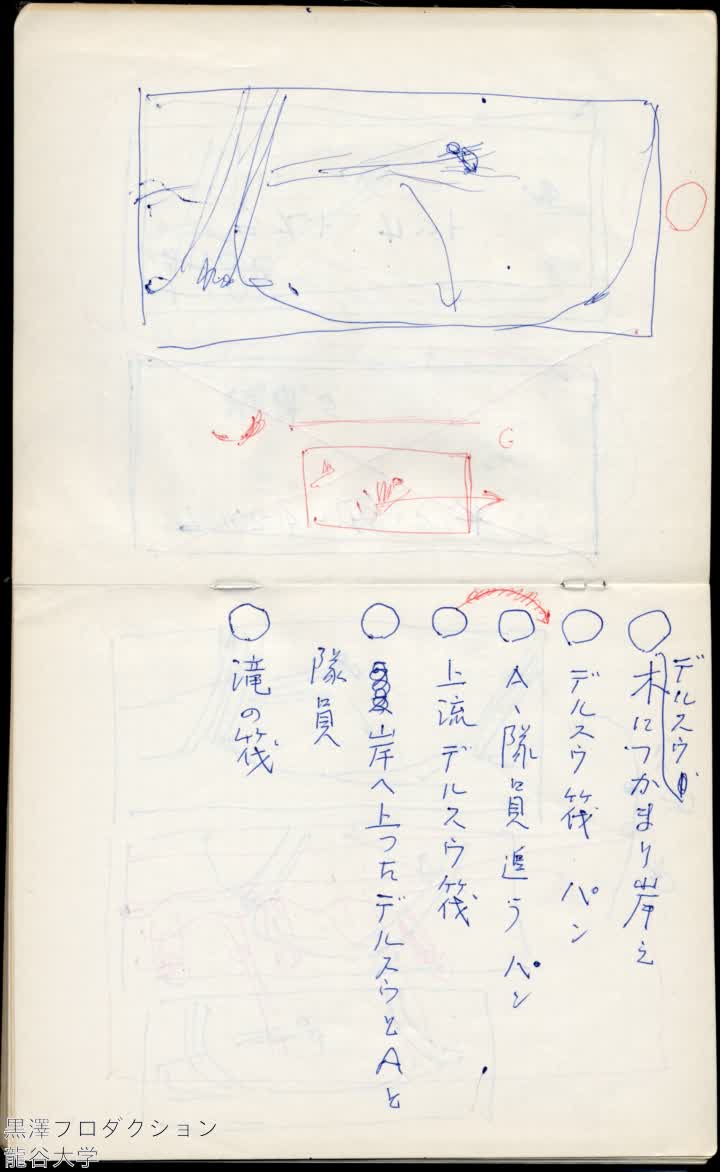 G
○ デルスウ木につかまり岸え
○ デルスウ筏 パン
○ A、隊員追う パン
○ 上流デルスウ筏
○ 岸へ上つたデルスウとAと
隊員
○ 滝の筏
黒澤プロダクション
龍谷大学